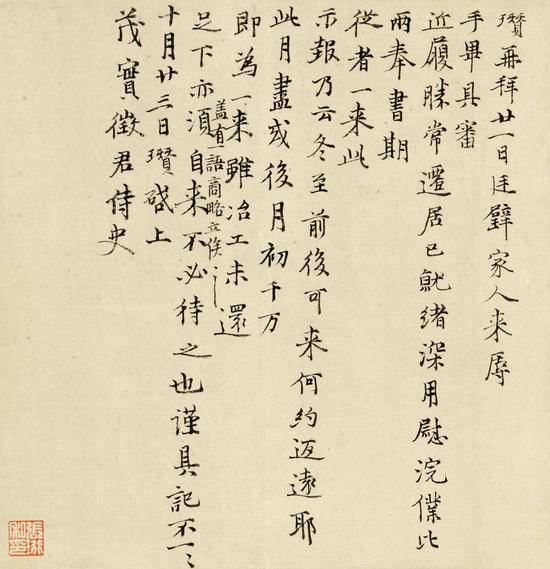 瓚再拜廿一日廷璧家人来辱
手畢具審
近履勝常遷居已就緒深用慰浣僕比
兩奉書期
從者一来此
示報乃云冬至前後可来何約迃遠耶
此月盡或後月初千万
即為一来雖冶工未還
盖有一語商略立俟
足下亦須自来不必待之也谨具記不一
十月廿三日瓚啓上
茂實徵君侍史